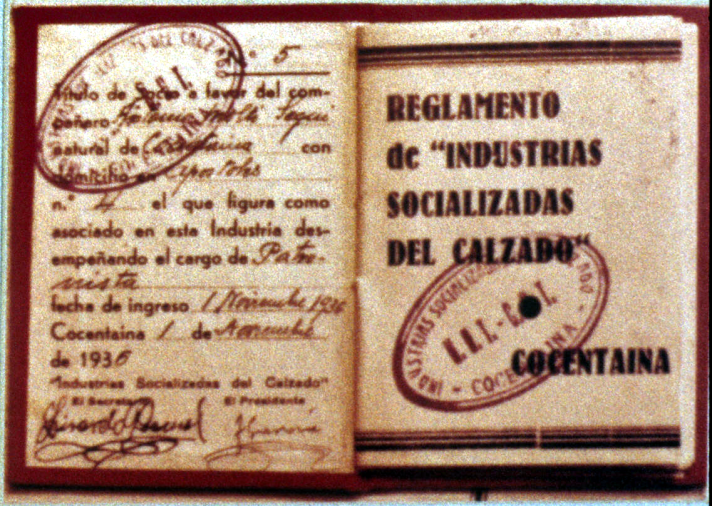 n.° 5
Título de Socio a favor del com-
pañero Antonio Moltó Seguí
natural de Cocentaina con
domicilio en Apostoles
n.° 4 el que figura como
asociado en esta Industria des-
empeñando el cargo de Patro-
nista
fecha de ingreso 1 Noviembre 1936
Cocentaina 1 de Noviembre
de 1936
"Industrias Socializadas del Calzado"
El Secretario El Presidente
REGLAMENTO
de "INDUSTRIAS
SOCIALIZADAS
DEL CALZADO"
COCENTAINA
INDUSTRIAS SOCIALIZADAS DEL CALZADO
- COCENTAINA -